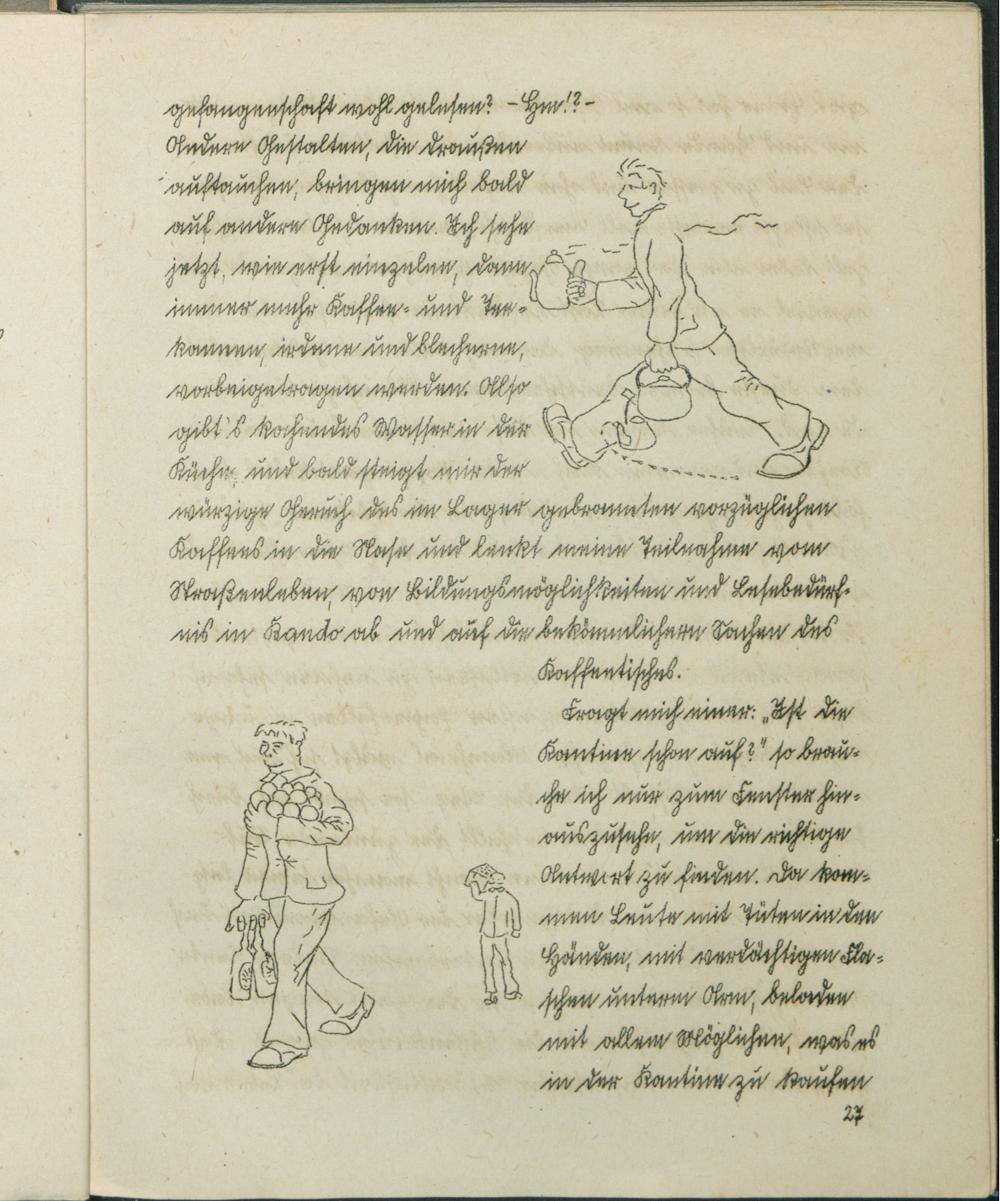 gefangenschaft wohl gelesen? – Hm!? –
Andere Gestalten, die draußen
auftauchen, bringen mich bald
auf andere Gedanken. Ich sehe
jetzt, wie erst einzelne, dann
immer mehr Kaffee- und Tee-
kannen, irdene und blecherne,
vorbeigetragen werden. Also
gibt's kochendes Wasser in der
Küche, und bald steigt mir der
würzige Geruch des im Lager gebrannten vorzüglichen
Kaffees in die Nase und lenkt meine Teilnahme vom
Straßenleben, von Bildungsmöglichkeiten und Lesebedürf-
nis in Bando ab und auf die bekömmlichern Sachen des
Kaffeetisches.
Fragt mich einer: „Ist die
Kantine schon auf?" so brau-
che ich nur zum Fenster hin-
auszusehn, um die richtige
Antwort zu finden. Da kom-
men Leute mit Tüten in den
Händen, mit verdächtigen Fla-
schen unterm Arm, beladen
mit allem Möglichen, was es
in der Kantine zu kaufen
27